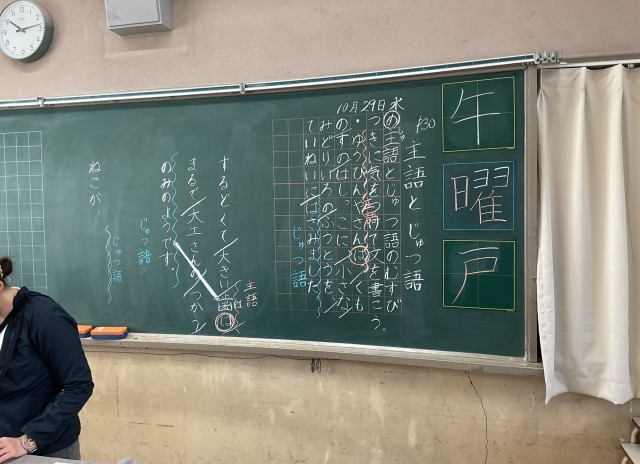 午
曜
戸
p30
主語とじゅつ語
10月29日 水
め 主語とじゅつ語のむすび
つきに気を
て文を書こう。
・ゆうびんやさんは、
くも
のすのはしっこに/小さな/
みどりいろのふうとうを/
ていねいにはさみました
じゅつ語
主語
するどくて/大きい/歯は
まるで/大工さんの/つかう/
のみのようです。
じゅつ語
ねこが
じゅつ語